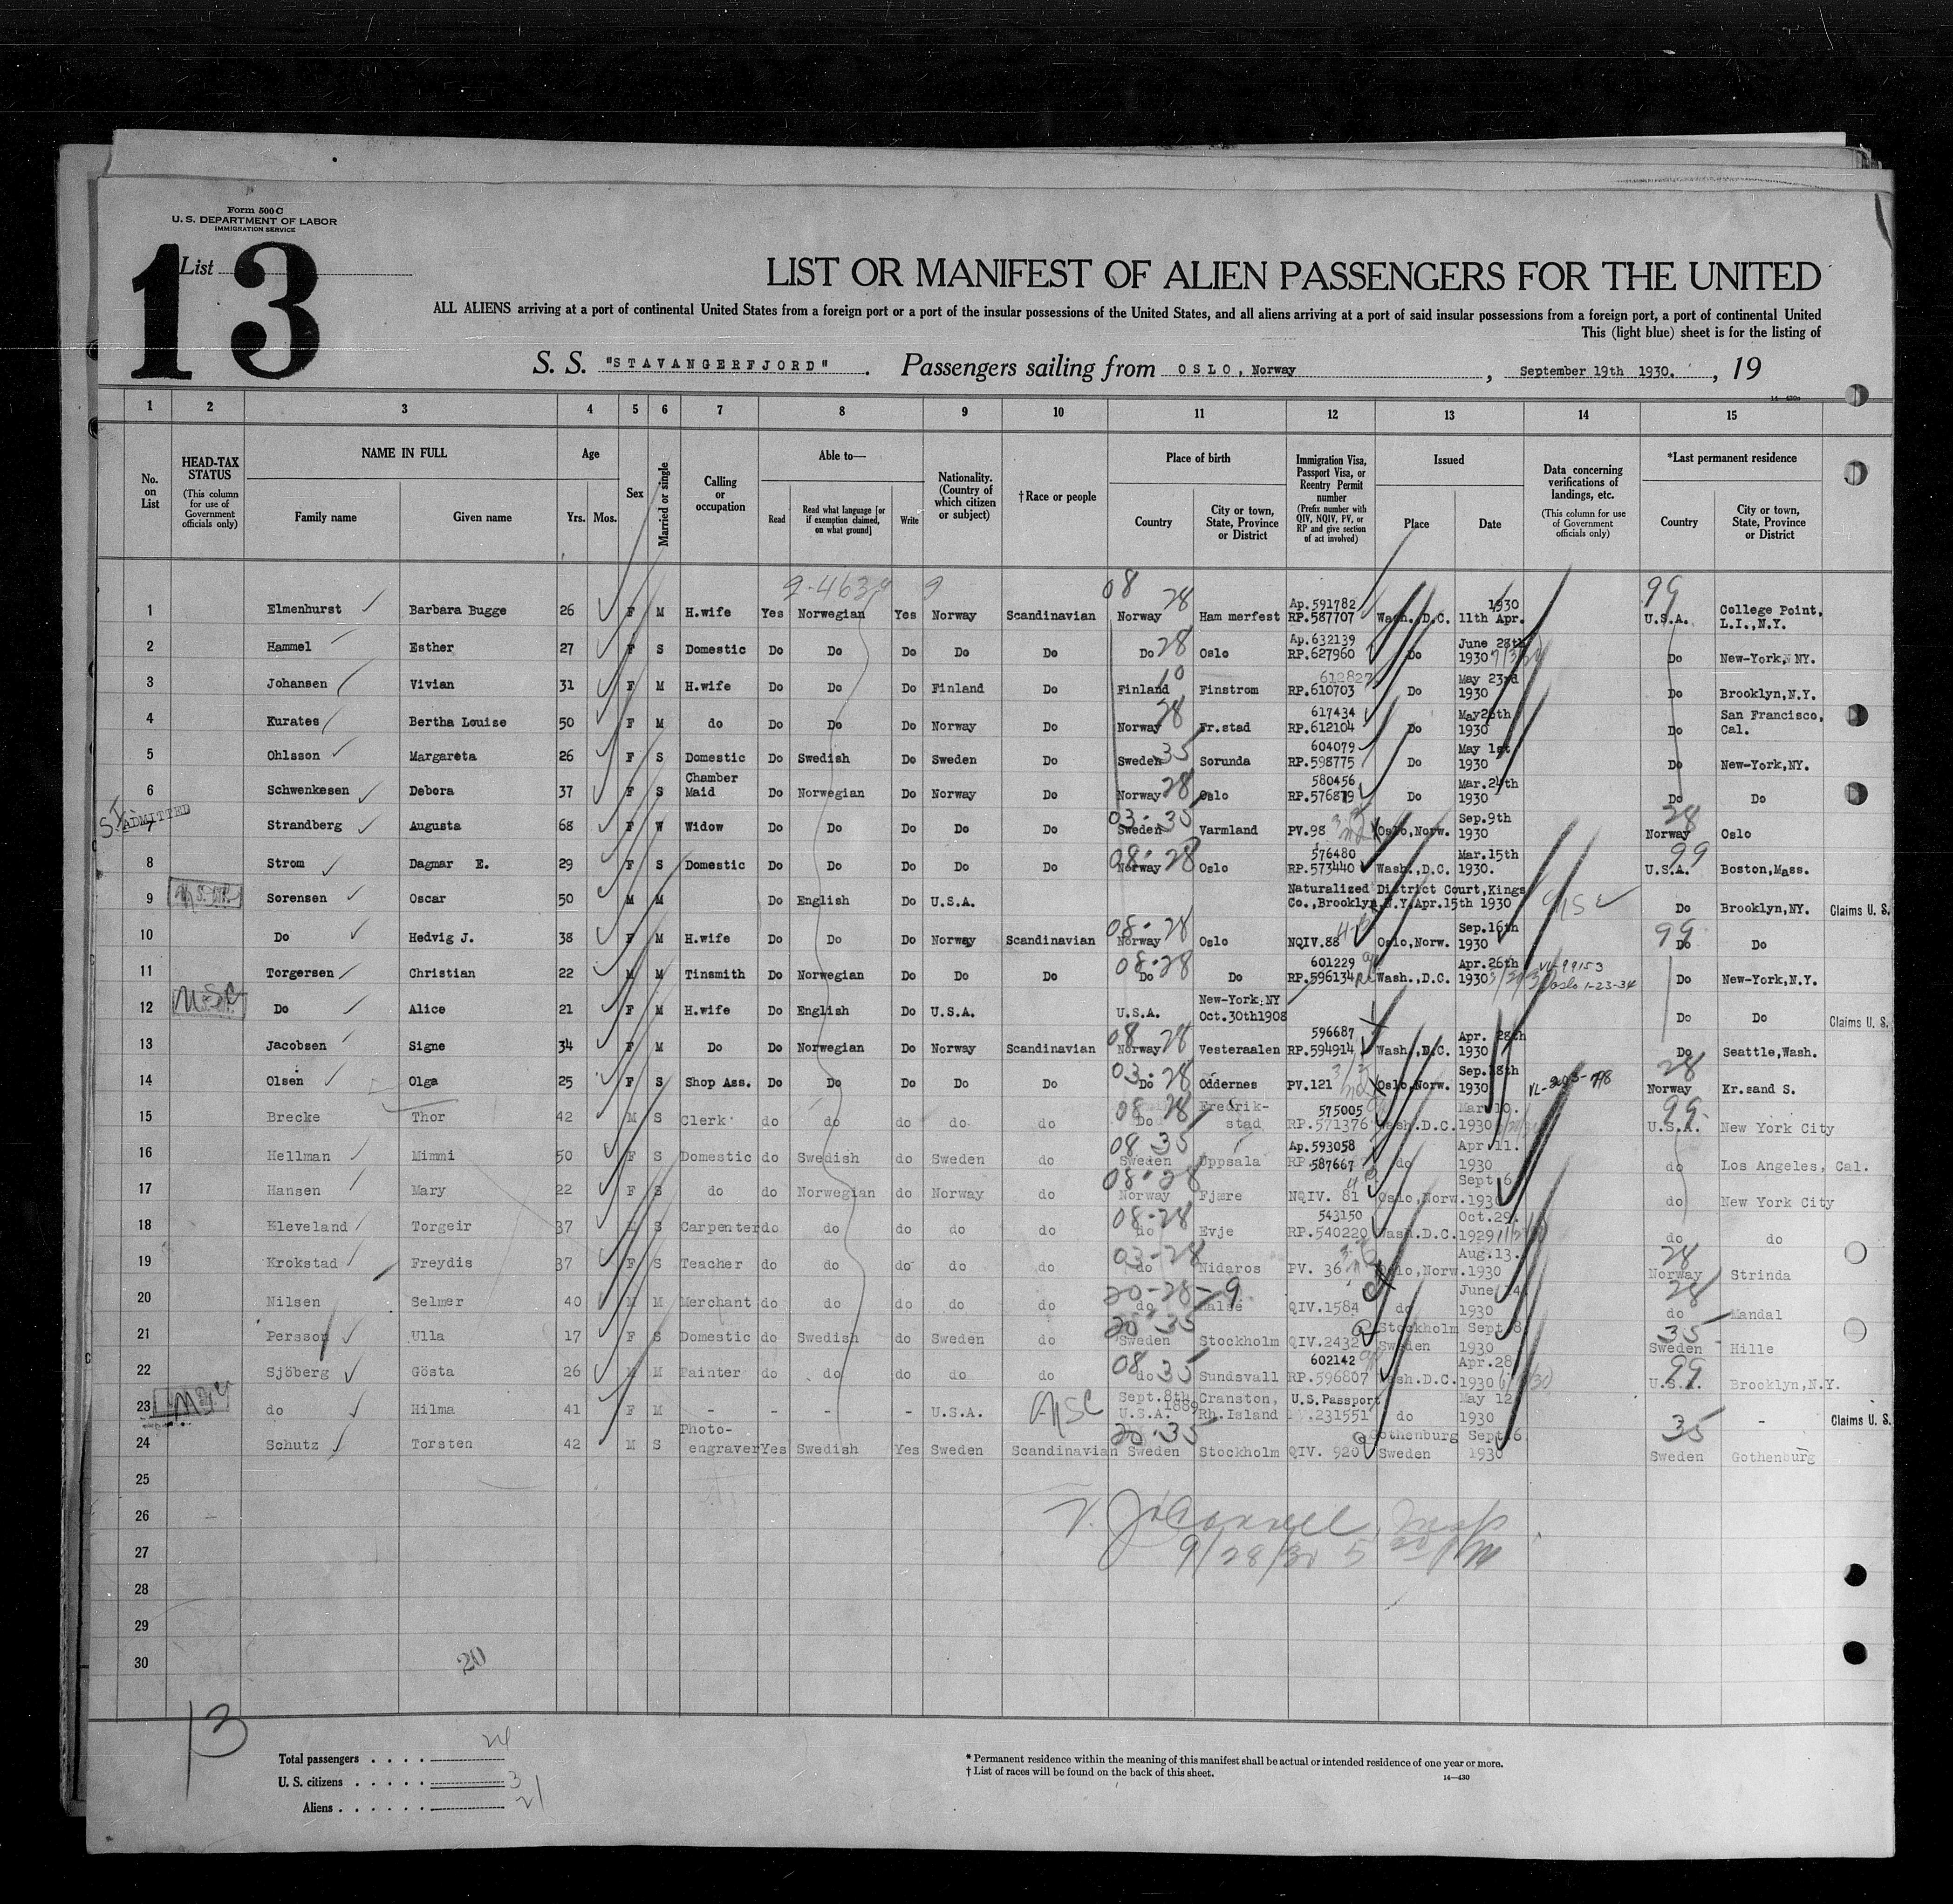 Form 500 C
U. S. DEPARTMENT OF LABOR
IMMIGRATION SERVICE
List 13
LIST OR MANIFEST OF ALIEN PASSENGERS FOR THE UNITED
ALL ALIENS arriving at a port of continental United States from a foreign port or a port of the insular possessions of the United States, and all aliens arriving at a port of said insular possessions from a foreign port, a port of continental United
This (light blue) sheet is for the listing of
S. S. "STAVANGERFJORD". Passengers sailing from OSLO, Norway, September 19th 1930., 19
14—430c
1 2 3 4 5 6 7 8 9 10 11 12 13 14 15
No. on List
HEAD-TAX STATUS (This column for use of Government officials only)
NAME IN FULL Family name Given name
Age Yrs. Mos.
Sex
Married or single
Calling or occupation
Able to— Read Read what language [or if exemption claimed, on what ground] Write
Nationality. (Country of which citizen or subject)
†Race or people
Place of birth Country City or town, State, Province or District
Immigration Visa, Passport Visa, or Reentry Permit number (Prefix number with QIV, NQIV, PV, or RP and give section of act involved)
Issued Place Date
Data concerning verifications of landings, etc. (This column for use of Government officials only)
*Last permanent residence Country City or town, State, Province or District
9-4639 9 08 99
1 Elmenhurst Barbara Bugge 26 F M H.wife Yes Norwegian Yes Norway Scandinavian Norway 28 Hammerfest Ap.591782 RP.587707 Wash.,D.C. 1930 11th Apr. U.S.A. College Point, L.I.,N.Y.
2 Hammel Esther 27 F S Domestic Do Do Do Do Do Do 28 Oslo Ap.632139 RP.627960 Do June 28th 1930 Do New-York, NY.
3 Johansen Vivian 31 F M H.wife Do Do Do Finland Do Finland 10 Finstrom 612827 RP.610703 Do May 23rd 1930 Do Brooklyn,N.Y.
4 Kurates Bertha Louise 50 F M do Do Do Do Norway Do Norway 28 Fr.stad 617434 RP.612104 Do May26th 1930 Do San Francisco, Cal.
5 Ohlsson Margareta 26 F S Domestic Do Swedish Do Sweden Do Sweden 35 Sorunda 604079 RP.598775 Do May 1st 1930 Do New-York,NY.
6 Schwenkesen Debora 37 F S Chamber Maid Do Norwegian Do Norway Do Norway 28 Oslo 580456 RP.576879 Do Mar.24th 1930 Do Do
S.I. ADMITTED
7 Strandberg Augusta 68 F W Widow Do Do Do Do Do 03-35 Sweden Varmland PV.98 Oslo,Norw. Sep.9th 1930 28 Norway Oslo
8 Strom Dagmar E. 29 F S Domestic Do Do Do Do Do 08-28 Norway Oslo 576480 RP.573440 Wash.,D.C. Mar.15th 1930. 99 U.S.A. Boston,Mass.
9 Sorensen Oscar 50 M M Do English Do U.S.A. Naturalized District Court,Kings Co.,Brooklyn,N.Y.Apr.15th 1930 USC Do Brooklyn,NY. Claims U. S.
10 Do Hedvig J. 38 F M H.wife Do Do Do Norway Scandinavian 08-28 Norway Oslo NQIV.88 Oslo,Norw. Sep.16th 1930 99 Do Do
11 Torgersen Christian 22 M M Tinsmith Do Norwegian Do Do Do 08-28 Do Do 601229 RP.596134 Wash.,D.C. Apr.26th 1930 VL-99153 Oslo 1-23-34 Do New-York,N.Y.
12 USC Do Alice 21 F M H.wife Do English Do U.S.A. U.S.A. New-York,NY Oct.30th1908 Do Do Claims U. S.
13 Jacobsen Signe 34 F M Do Do Norwegian Do Norway Scandinavian 08 Norway 28 Vesteraalen 596687 RP.594914 Wash.,D.C. Apr. 28th 1930 Do Seattle,Wash.
14 Olsen Olga 25 F S Shop Ass. Do Do Do Do Do 03-28 Do Oddernes PV.121 Oslo,Norw. Sep.18th 1930 28 Norway Kr.sand S.
15 Brecke Thor 42 M S Clerk do do do do do 08 28 Do Fredrik-stad 575005 RP.571376 Wash.D.C. Mar.10. 1930 99 U.S.A. New York City
16 Hellman Mimmi 50 F S Domestic do Swedish do Sweden do 08 35 Sweden Uppsala Ap.593058 RP.587667 do Apr.11. 1930 do Los Angeles, Cal.
17 Hansen Mary 22 F S do do Norwegian do Norway do 08-28 Norway Fjære NQIV. 81 Oslo,Norw. Sept.6 1930 do New York City
18 Kleveland Torgeir 37 M S Carpenter do do do do do 08-28 do Evje 543150 RP.540220 Wash.D.C. Oct.29. 1929 do do
19 Krokstad Freydis 37 F S Teacher do do do do do 03-28 do Nidaros PV. 36 Oslo,Norw. Aug.13. 1930 28 Norway Strinda
20 Nilsen Selmer 40 M M Merchant do do do do do 20-28-9 do Halse QIV.1584 do June 14. 1930 28 do Mandal
21 Persson Ulla 17 F S Domestic do Swedish do Sweden do 20-35 Sweden Stockholm QIV.2432 Stockholm Sweden Sept.8. 1930 35 Sweden Hille
22 Sjöberg Gösta 26 M M Painter do do do do do 08 35 do Sundsvall 602142 RP.596807 Wash.D.C. Apr.28. 1930 99 U.S.A. Brooklyn,N.Y.
23 do Hilma 41 F M - - - - U.S.A. USC Sept.8th 1889 U.S.A. Cranston, Rh.Island U.S.Passport 231551 do May 12 1930 - Claims U. S.
24 Schutz Torsten 42 M S Photo-engraver Yes Swedish Yes Sweden Scandinavian 20-35 Sweden Stockholm QIV. 920 Gothenburg Sweden Sept.6. 1930 35 Sweden Gothenburg
25
26
27 9/28/30
28
29
30
20
13
Total passengers . . . . 24
U. S. citizens . . . . . 3
Aliens . . . . . . 21
* Permanent residence within the meaning of this manifest shall be actual or intended residence of one year or more.
† List of races will be found on the back of this sheet.
14—430